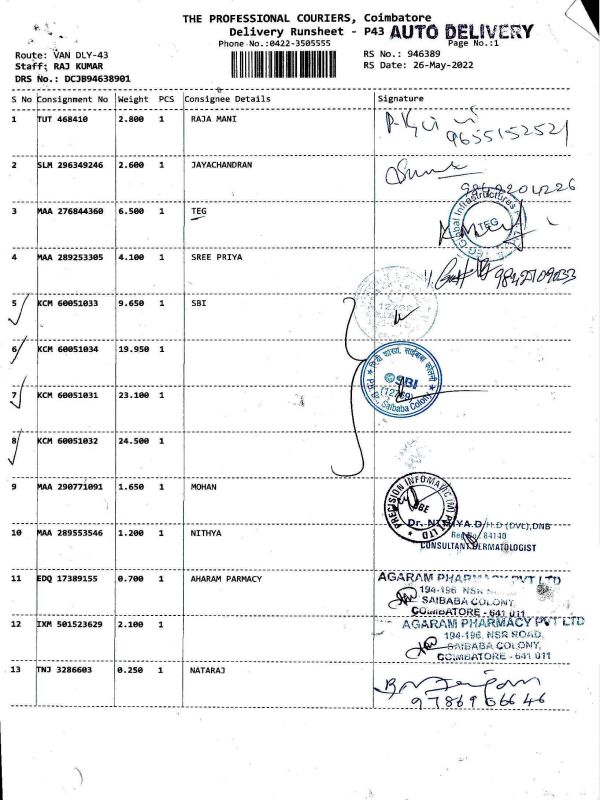 THE PROFESSIONAL COURIERS, Coimbatore
Delivery Runsheet - P43 AUTO DELIVERY
Phone No.:0422-3505555 Page No.:1
Route: VAN DLY-43 RS No.: 946389
Staff: RAJ KUMAR RS Date: 26-May-2022
DRS No.: DCJB94638901
S No Consignment No Weight PCS Consignee Details Signature
1 TUT 468410 2.800 1 RAJA MANI
9655152521
2 SLM 296349246 2.600 1 JAYACHANDRAN
3 MAA 276844360 6.500 1 TEG
TEG Global Infrastructures
TEG
4 MAA 289253305 4.100 1 SREE PRIYA
5 KCM 60051033 9.650 1 SBI
6 KCM 60051034 19.950 1
SBI
Saibaba Colony
7 KCM 60051031 23.100 1
8 KCM 60051032 24.500 1
9 MAA 290771091 1.650 1 MOHAN
PRECISION INFOMATIC (M) PVT LTD
10 MAA 289553546 1.200 1 NITHYA
Dr. NITHYA.D M.D (DVL),DNB
84140
CONSULTANT DERMATOLOGIST
11 EDQ 17389155 0.700 1 AHARAM PARMACY
AGARAM PHARMACY PVT LTD
194-196, NSR
SAIBABA COLONY,
COIMBATORE - 641 011
12 IXM 501523629 2.100 1
AGARAM PHARMACY PVT LTD
194-196, NSR ROAD,
SAIBABA COLONY,
COIMBATORE - 641 011
13 TNJ 3286603 0.250 1 NATARAJ
9786966646